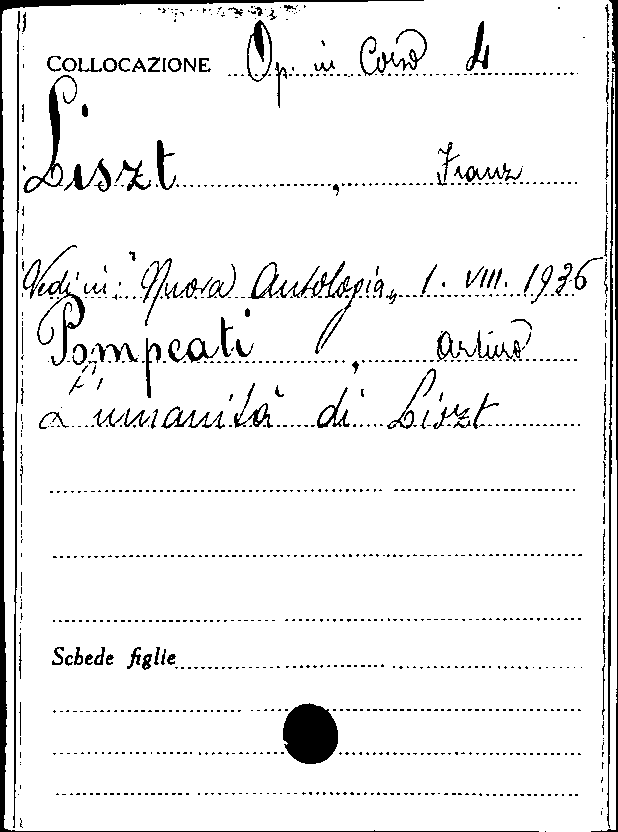 COLLOCAZIONE Op. in Corso 4
Liszt, Franz
Vedi in: "Nuova Antologia„ 1. VIII. 1936
Pompeati, Arturo
L'umanità di Liszt
Schede figlie